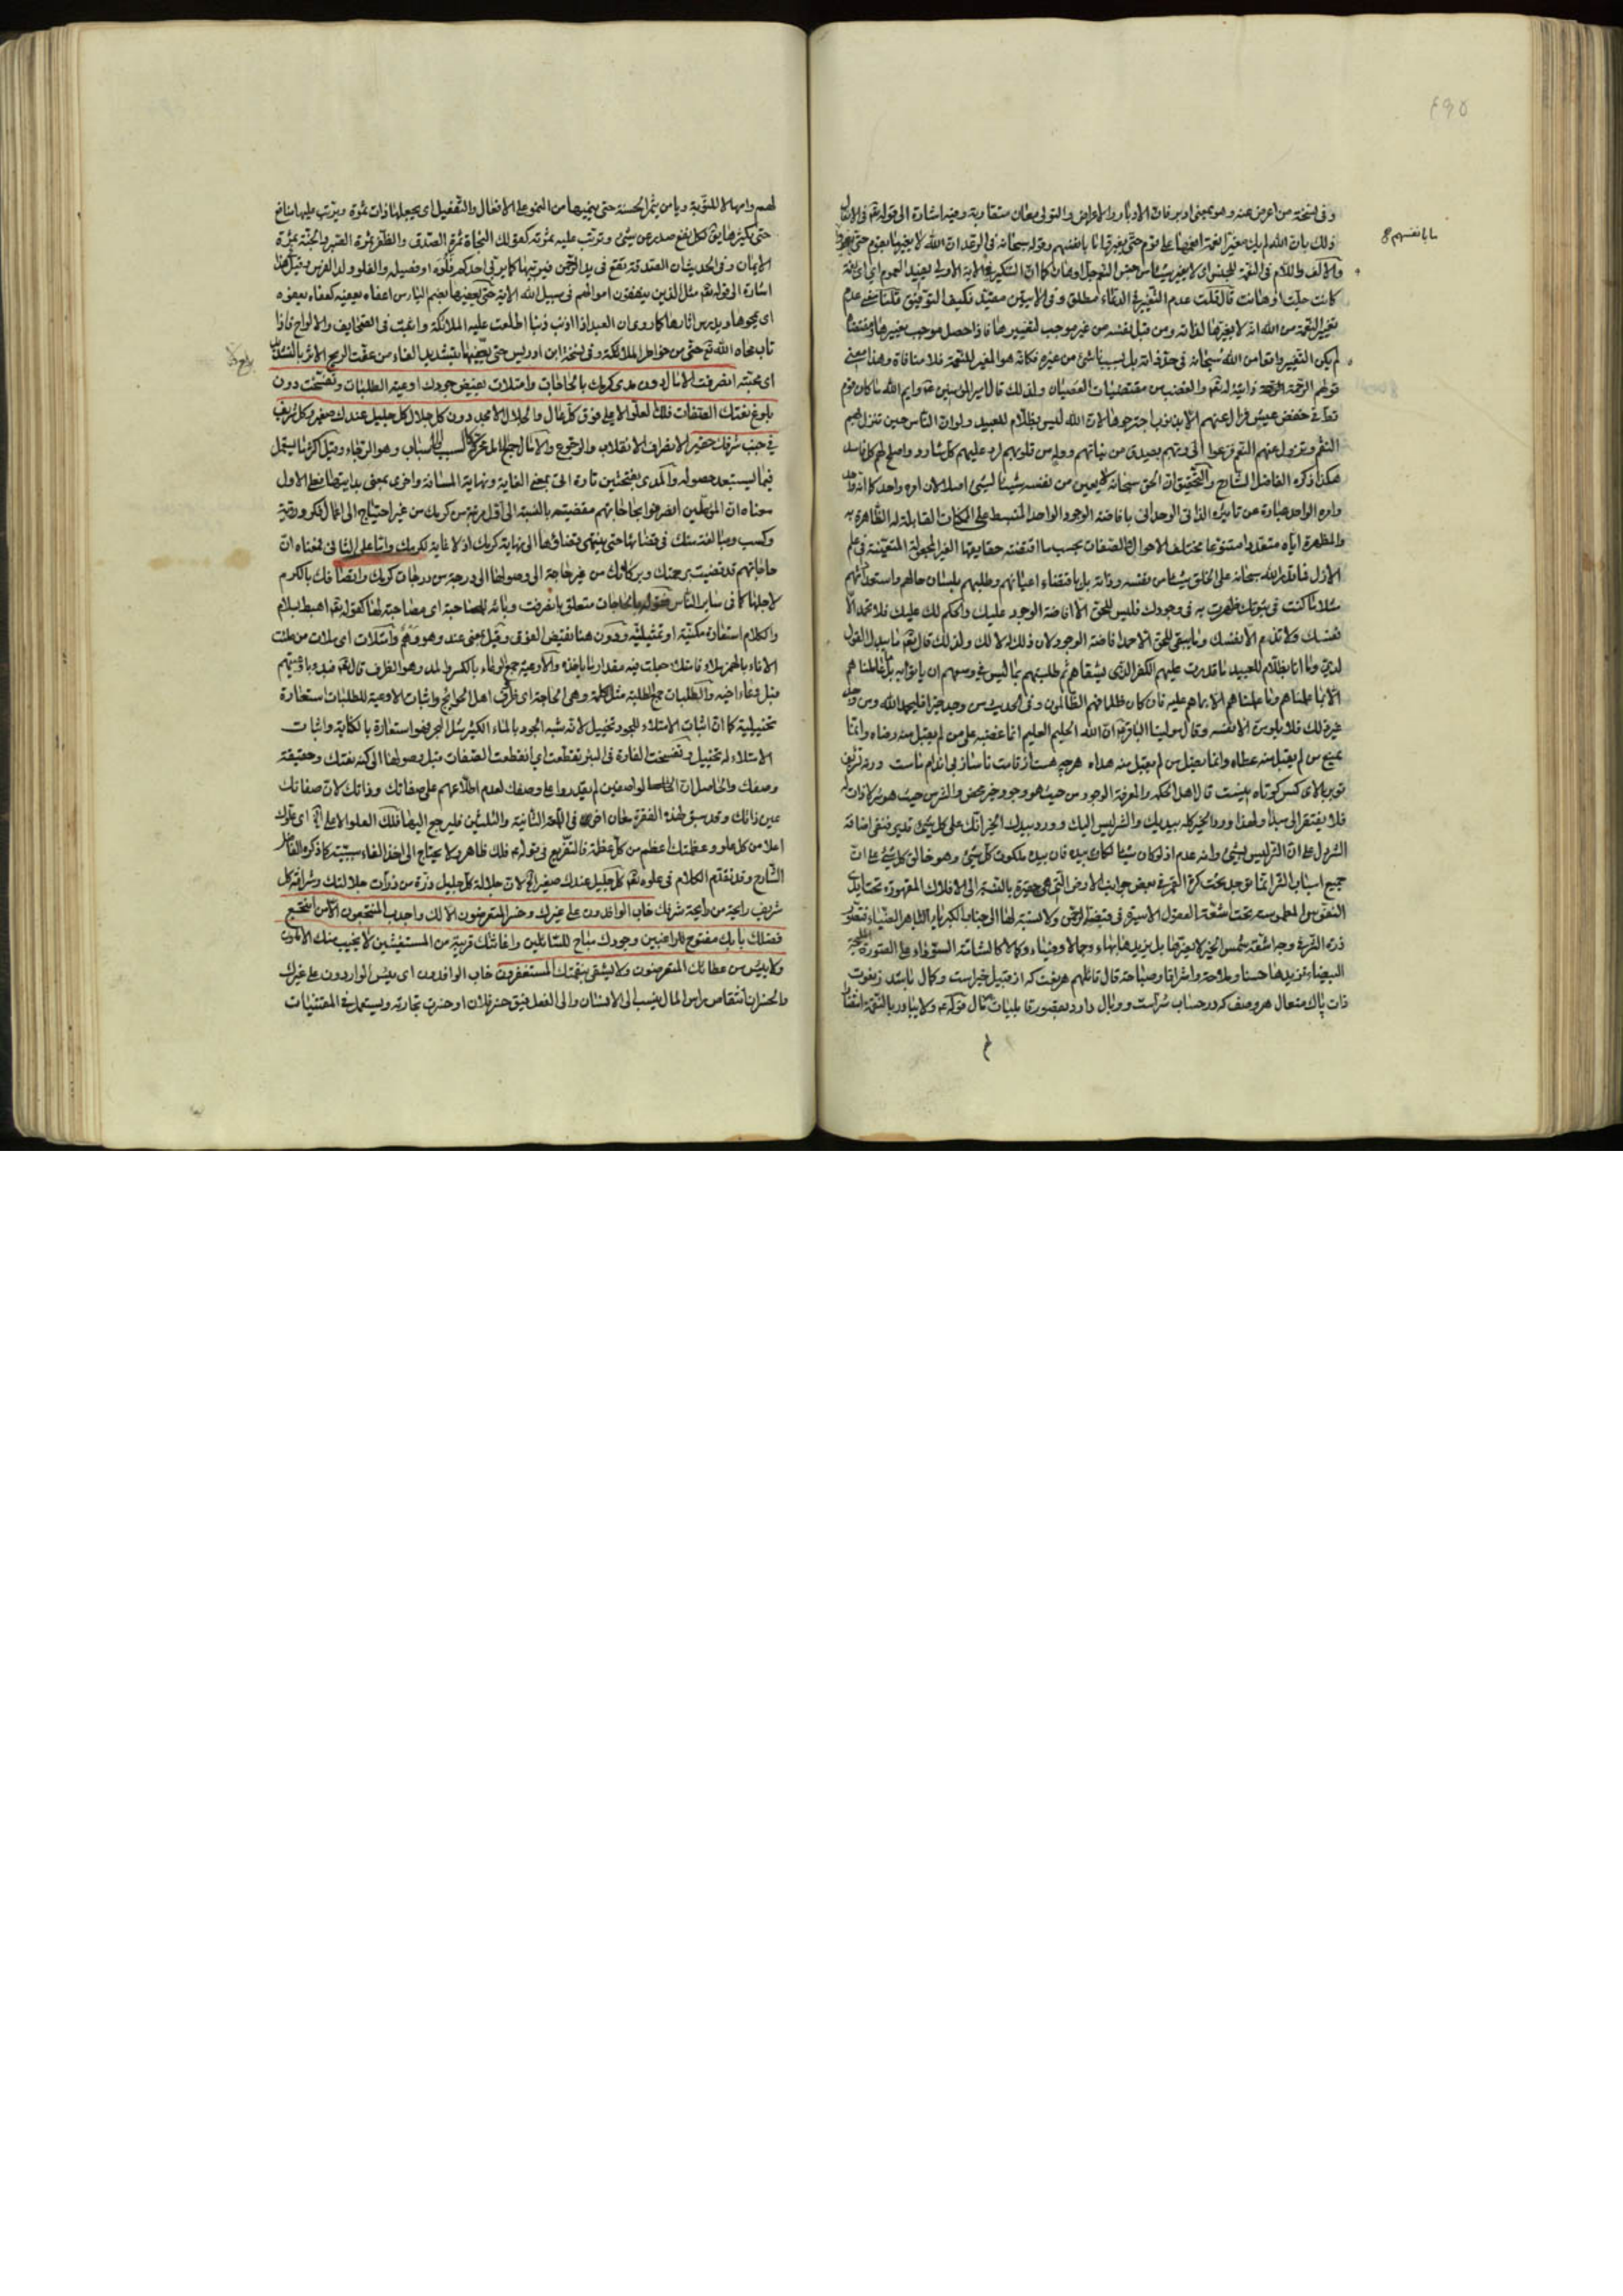 ٤٩٥
وفى نسخة من اعرض عنه وهو بمعنى ادبر فان الادبار والاعراض والتولى معان متقاربة وفيه اشارة الى قوله تعم فى الانفال
ذلك بان الله لم يك مغيرا نعمة انعمها على قوم حتى يغيروا ما بانفسهم وقوله سبحانه فى الرعد ان الله لا يغير ما بقوم حتى يغيروا
ما بانفسهم
والالف واللام فى النعمة للجنس اى لا يغير شيئا من جنس النعم جل او هان كما ان التنكير فى الاية الاولى يفيد العموم اى اى نعمة
كانت جلت او هانت فان قلت عدم التغيير فى الدعاء مطلق وفى الايتين مقيد فكيف التوفيق قلنا معنى عدم
تغيير النعمة من الله انه لا يغيرها لذاته ومن قبل نفسه من غير موجب لتغييرها فاذا حصل موجب تغييرها
لم يكن التغيير واقعا من الله سبحانه فى حد ذاته بل بسبب ناشئ من غيره فكانه هو المغير للنعمة فلا منافاة وهذا معنى
قولهم الرحمة ذاتية له تعم والغضب من مقتضيات العصيان ولذلك قال امير المؤمنين عم وايم الله ما كان قوم
قط فى خفض عيش فزال عنهم الا بذنوب اجترحوها لان الله ليس بظلام للعبيد ولو ان الناس حين تنزل بهم
النقم وتزول عنهم النعم فزعوا الى ربهم بصدق من نياتهم ووله من قلوبهم لرد عليهم كل شارد واصلح لهم كل فاسد
هكذا ذكره الفاضل الشارح والتحقيق ان الحق سبحانه لا يعين من نفسه شيئا لشئ اصلا لان امره واحد كما انه واحد
وامره الواحد عبارة عن تاثيره الذاتى الوحدانى بافاضة الوجود الواحد المنبسط على الممكنات القابلة له الظاهرة به
والمظهرة اياه متعددا متنوعا مختلف الاحوال والصفات بحسب ما اقتضته حقايقها الغير المجعولة المتعينة فى علم
الازل فما قدر الله سبحانه على الخلق شيئا من نفسه وذاته بل باقتضاء اعيانهم وطلبهم بلسان حالهم واستعداداتهم
مثلا ما كنت فى ثبوتك ظهرت به فى وجودك فليس للحق الا افاضة الوجود عليك والحكم لك عليك فلا تحمد الا
نفسك ولا تذم الا نفسك وما يبقى للحق الا حمد افاضة الوجود لان ذلك له لا لك ولذلك قال تعم ما يبدل القول
لدى وما انا بظلام للعبيد ما قدرت عليهم الكفر الذى يشقاهم ثم طلبتهم بما ليس فى وسعهم ان ياتوا به بل ما عاملناهم
الا بما علمناهم وما علمناهم الا بما هم عليه فان كان ظلما فهم الظالمون وفى الحديث من وجد خيرا فليحمد الله ومن وجد
غير ذلك فلا يلومن الا نفسه وقال مولينا الباقر عم ان الله الحليم العليم انما غضبه على من لم يقبل منه رضاه وانما
يمنع من لم يقبل منه عطاه وانما يضل من لم يقبل منه هداه هرچه هست از قامت ناساز بى اندام ماست ورنه تشريف
تو بر بالاى كس كوتاه نيست قال اهل الحكمة والمعرفة الوجود من حيث هو وجود خير محض والشر من حيث هو شر لا ذات له
فلا يفتقر الى مبدأ ولهذا ورد الخير كله بيديك والشر ليس اليك وورد بيدك الخير انك على كل شئ قدير فنفى اضافة
الشر دل على ان الشر ليس بشئ وانه عدم اذ لو كان شيئا لكان بيده فان بيده ملكوت كل شئ وهو خالق كل شئ على ان
جميع اسباب الشر انما توجد تحت كرة القمر فى بعض جوانب الارض التى هى حقيرة بالنسبة الى الافلاك المقهورة تحت ايدى
النفوس المطموسة تحت اشعة العقول الاسيرة فى قبضة الرحمن ولا نسبة لها الى جناب الكبرياء الباهر الضياء
ذرة الشر فى وجه اشعة شمس الخير لا يضرها بل يزيدها بهاء وجمالا وضياء وكمالا كالشامة السوداء على الصورة المليحة
البيضاء تزيدها حسنا وملاحة واشراقا وصباحة قال قائلهم هر نعت كه از قبيل خيراست وكمال باشد ز نعوت
ذات پاك متعال هر وصف كه در حساب شراست ووبال دارد بقصور قابليات مآل قوله عم ولا يبادر بالنقمة
لهم وامهالا للتوبة ويا من يثمر الحسنة حتى ينميها من النمو على الافعال والتفعيل اى يجعلها ذات ثمرة ويرتب عليها منافع
حتى يكثرها يق لكل نفع صدر عن شئ وترتب عليه ثمرته كقولك النجاة ثمرة الصدق والظفر ثمرة الصبر والجنة ثمرة
الايمان وفى الحديث ان الصدقة تقع فى يد الرحمن فيربيها كما يربى احدكم فلوه او فصيله والفلو ولد الفرس وقيل هذا
اشارة الى قوله تعم مثل الذين ينفقون اموالهم فى سبيل الله الاية حتى يعفيها بضم الياء من اعفاه يعفيه كعفاه يعفوه
اى يمحوها ويدرس اثارها كما روى ان العبد اذا اذنب ذنبا اطلعت عليه الملائكة واثبت فى الصحايف والالواح فاذا
تاب محاه الله تعم حتى من خواطر الملائكة وفى نسخة ابن ادريس حتى يعفيها بتشديد الفاء من عفت الريح الاثر بالتشديد
اى محته انصرفت الامال دون مدى كرمك بالحاجات وامتلات بفيض جودك اوعية الطلبات وتفسخت دون
بلوغ نعتك الصفات فلك العلو الاعلى فوق كل عال والجلال الامجد دون كل جلال كل جليل عندك صغير وكل شريف
فى جنب شرفك حقير الانصراف الانقلاب والرجوع والامال جمع امل محركة لسبب الاسباب وهو الرجاء وقيل اكثر ما يستعمل
فيما يستبعد حصوله والمدى بفتحتين تارة اتى بمعنى الغاية ونهاية المسافة واخرى بمعنى بدايتها فعلى الاول
معناه ان المؤملين انصرفوا بحاجاتهم مقضيته بالنسبة الى اقل مرتبة من كرمك من غير احتياج الى اعمال فكر وروية
وكسب ومبالغة منك فى قضائها حتى ينتهى قضاؤها الى نهاية كرمك اذ لا غاية لكرمك واما على الثانى فمعناه ان
حاجاتهم قد قضيت برحمتك وبركاتك من غير حاجة الى وصولها الى درجة من درجات كرمك واتصافك بالكرم
لاجلها كما فى ساير الناس فقوله بالحاجات متعلق بانصرفت وبائه للمصاحبة اى مصاحبة لها كقوله تعم اهبط بسلام
والكلام استعارة مكنية او تمثيلية ودون هنا نقيض الفوق وقيل بمعنى عند وهو وهم وامتلات اى ملات من ملئت
الاناء بالهمز ملاء فامتلا جعلت فيه مقدار ما ياخذه والاوعية جمع الوعاء بالكسر والمد وهو الظرف قال تعم فبدا باوعيتهم
قبل وعاء اخيه والطلبات جمع الطلبة مثل كلمة وهى الحاجة اى ظروف اهل الحوائج واثبات الاوعية للطلبات استعارة
تخييلية كما ان اثبات الامتلاء للجود تخييل لانه شبه الجود بالماء الكثير مثل البحر فهو استعارة بالكناية واثبات
الامتلاء له تخييل وتفسخت الفارة فى البئر تقطعت اى انقطعت الصفات قبل وصولها الى كنه نعتك وحقيقة
وصفك والحاصل ان الواصفين لم يقدروا على وصفك لعدم اطلاعهم على صفاتك وذاتك لان صفاتك
عين ذاتك وقد سبق لهذه الفقرة معان اخر فى اللمعة الثانية والثلثين فليرجع اليها فلك العلو الاعلى الخ اى علوك
اعلا من كل علو وعظمتك اعظم من كل عظمة فالتفريع فى قوله عم فلك ظاهر ولا يحتاج الى اخذ الفاء سببية كما ذكره الفاضل
الشارح وقد تقدم الكلام فى علوه تعم كل جليل عندك صغير الخ لان جلالة كل جليل ذرة من ذرات جلالتك وشرافة كل
شريف رايحة من رايحة شرفك خاب الوافدون على غيرك وخسر المتعرضون الا لك واجدب المنتجعون الا من انتجع
فضلك بابك مفتوح للراغبين وجودك مباح للسائلين واغاثتك قريبة من المستغيثين لا يخيب منك الاملون
ولا ييئس من عطائك المتعرضون ولا يشقى بنقمتك المستغفرون خاب الوافدون اى يئس الواردون على غيرك
والخسران انتقاص راس المال ينسب الى الانسان والى الفعل فيق خسر فلان او خسرت تجارته ويستعمل فى المقتنيات